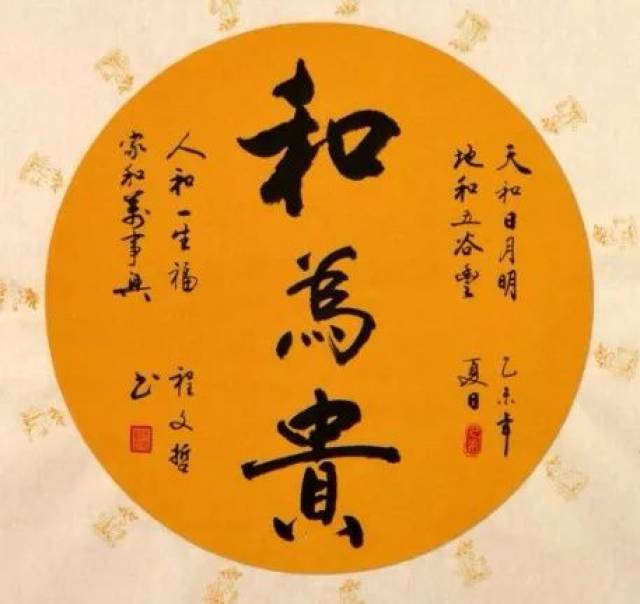 天和日月明
地和五谷豐
乙未年
夏日
和為貴
人和一生福
家和萬事興
程文哲
书